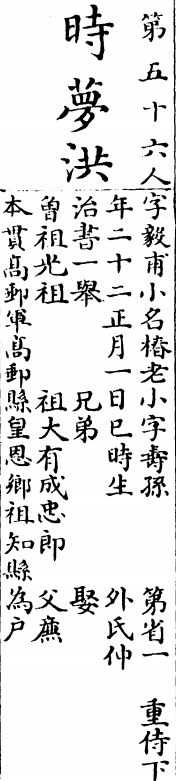 第五十六人
時夢洪
字毅甫小名椿老小字壽孫　第省一　重侍下
年二十二正月一日巳時生　外氏仲
治書一舉　兄弟　娶
曾祖光祖　祖大有成忠郎　父廡
本貫高郵軍高郵縣皇恩鄉祖知縣為戶